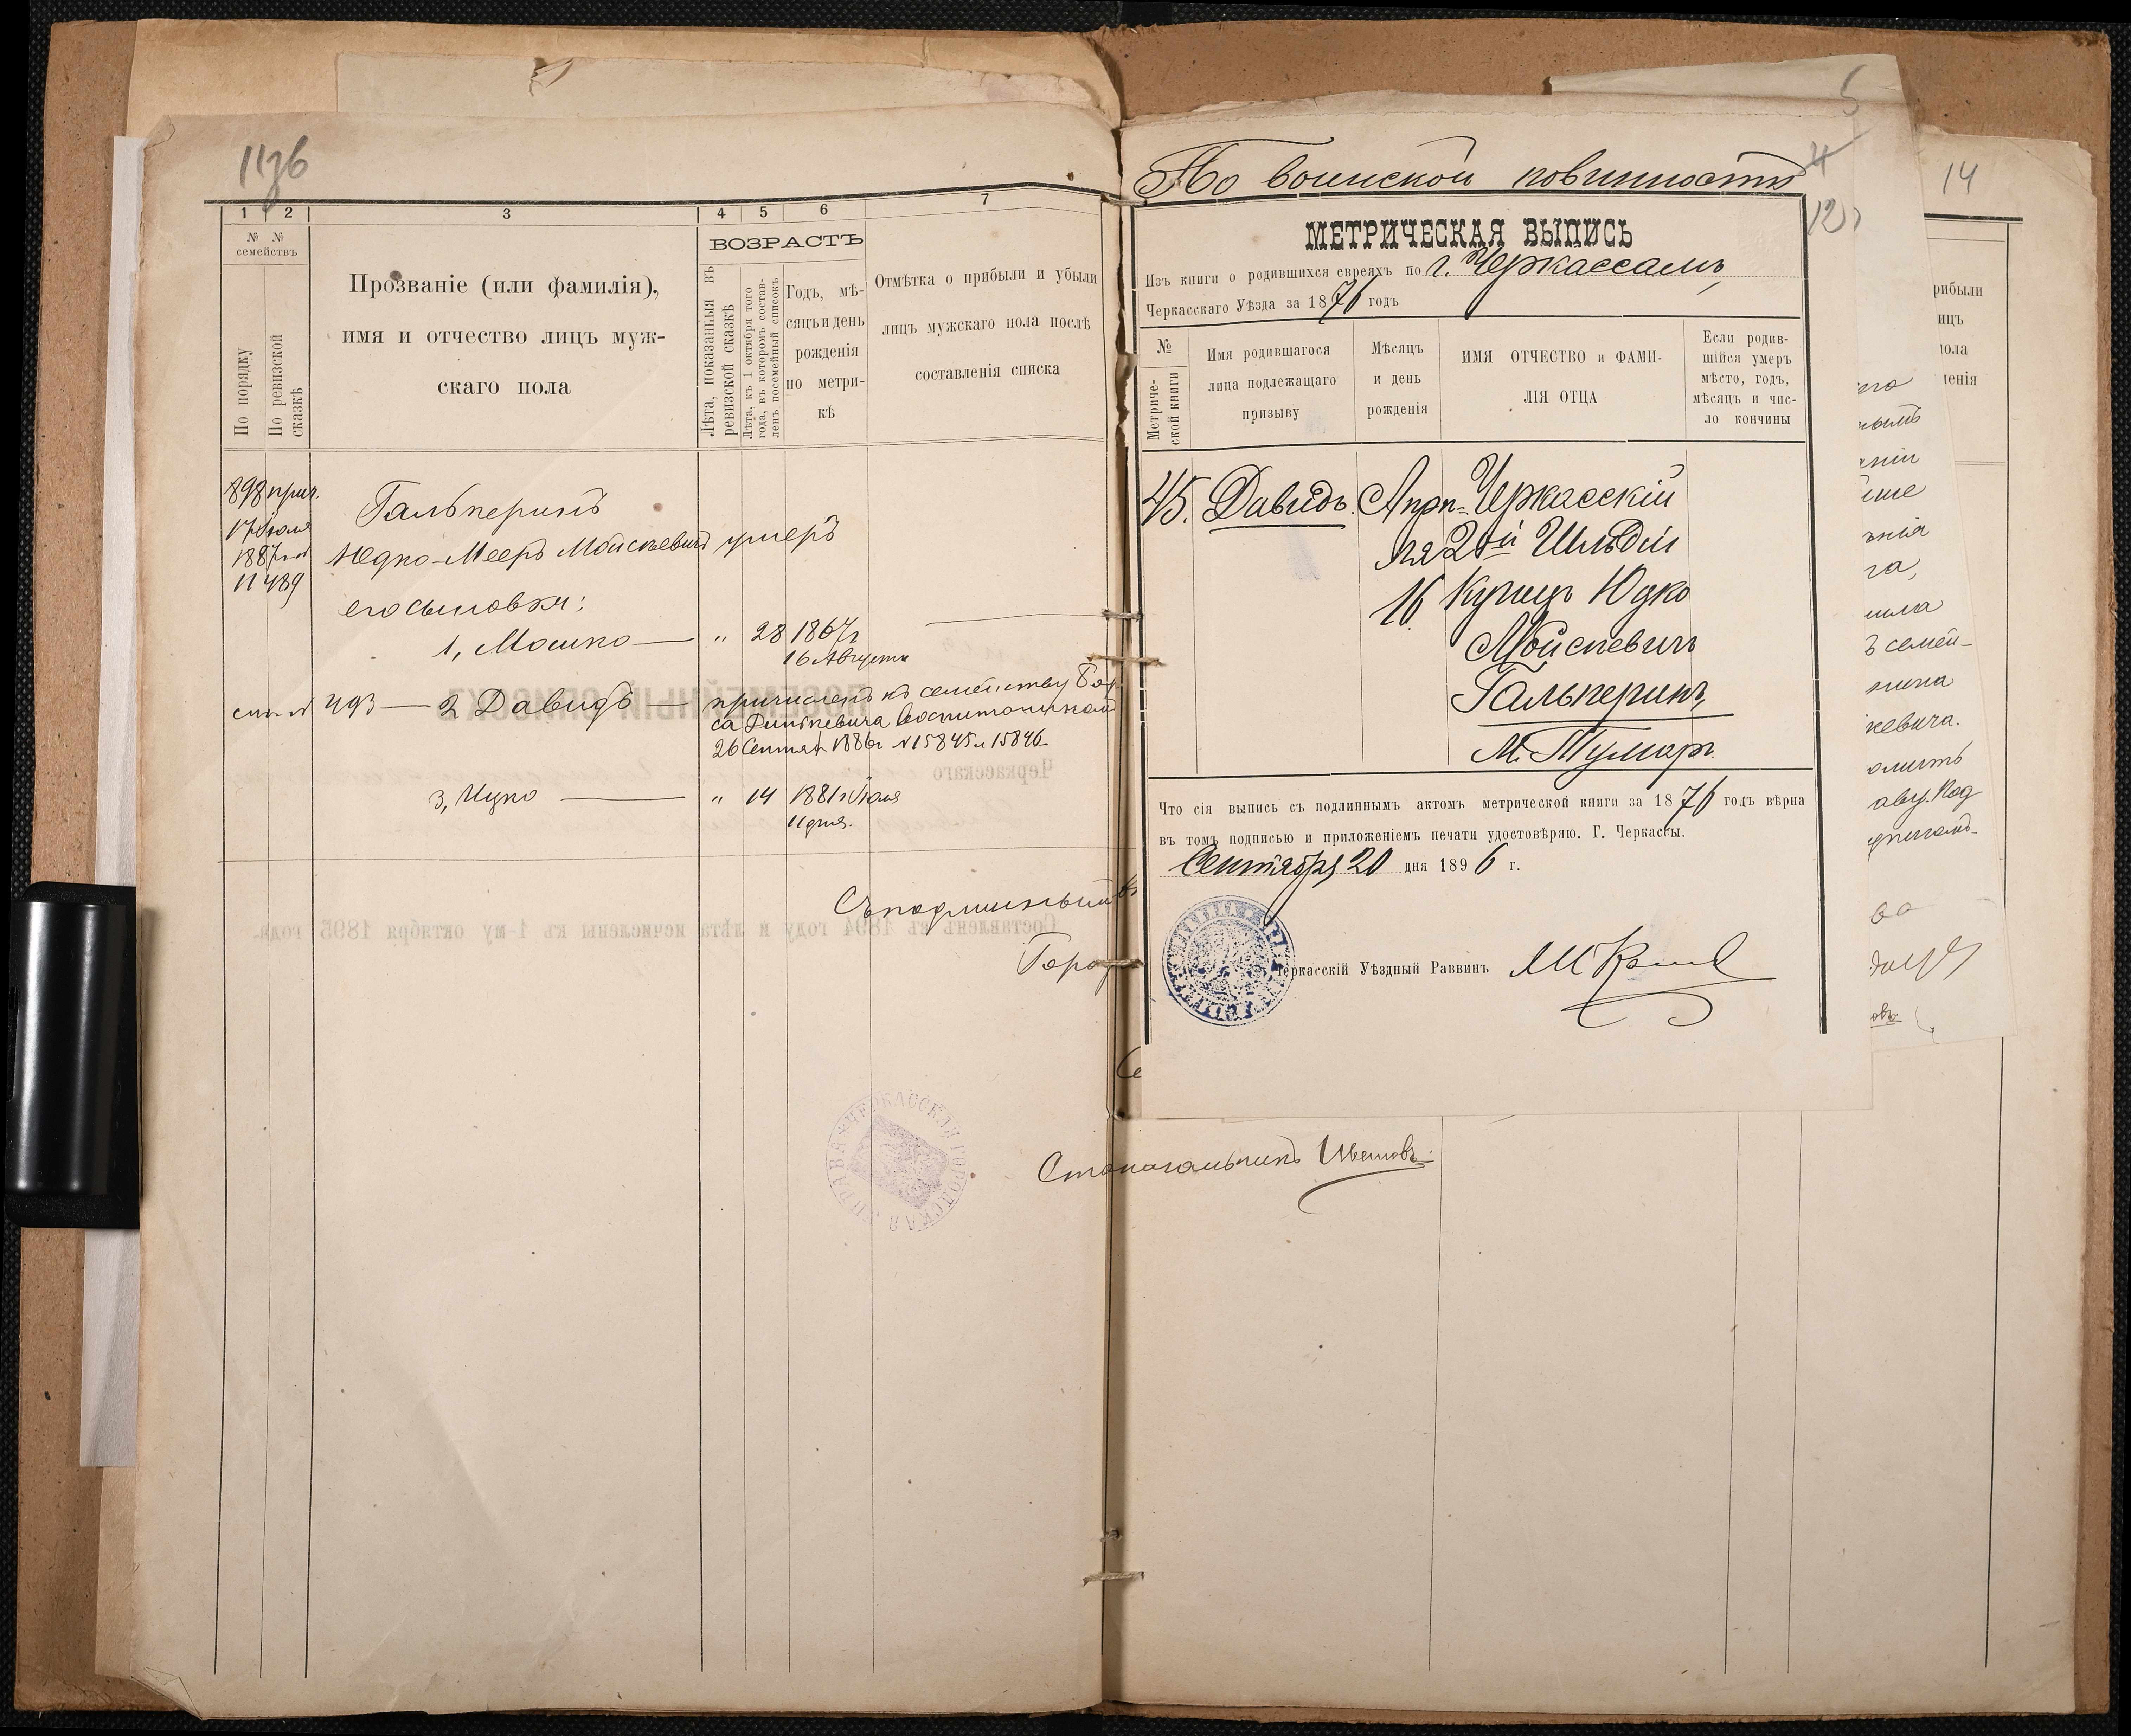 1136
1 2 3 4 5 6 7
№ № семействъ
По порядку
По ревизской сказкѣ
Прозваніе (или фамилія),
имя и отчество лицъ муж-
скаго пола
ВОЗРАСТЪ
Лѣта, показанныя въ ревизской сказкѣ
Лѣта, къ 1 октября того года, въ которомъ составленъ посемейный списокъ
Годъ, мѣ-
сяцъ и день
рожденія
по метри-
кѣ
Отмѣтка о прибыли и убыли
лицъ мужскаго пола послѣ
составленія списка
898 прич.
17 Іюля
1887 г.
N 489
Гальперинъ
Юдко-Мееръ Мойсеевичъ умеръ
его сыновья:
1, Мошко — „ 28 1867 г.
16 Августа
493 — 2 Давидъ — причисленъ къ семейству Бор
са Динкевича Воспитанникомъ
26 Сентяб 1886 г N 15845 и 15846
3, Ицко — „ 14 1881 г. Іюля
11 дня.
Съ подлиннымъ
Горо
ЧЕРКАССКАЯ ГОРОДСКАЯ УПРАВА
Столоначальникъ
По воинской повинности
5
4
12
14
МЕТРИЧЕСКАЯ ВЫПИСЬ
Изъ книги о родившихся евреяхъ по г. Черкассамъ,
Черкасскаго Уѣзда за 1876 годъ
№ Метриче-
ской книги
Имя родившагося
лица подлежащаго
призыву
Мѣсяцъ
и день
рожденія
ИМЯ ОТЧЕСТВО и ФАМИ-
ЛІЯ ОТЦА
Если родив-
шійся умеръ
мѣсто, годъ,
мѣсяцъ и чис-
ло кончины
45. Давидъ. Апрѣ- Черкасскій
ля 2ой Гильдіи
16 Купецъ Юдко
Мойсеевичъ
Гальперинъ,
Что сія выпись съ подлиннымъ актомъ метрической книги за 1876 годъ вѣрна
въ томъ подписью и приложеніемъ печати удостовѣряю. Г. Черкассы.
Сентября 20 дня 1896 г.
Черкасскій Уѣздный Раввинъ
рибыли
ицъ
пола
ленія